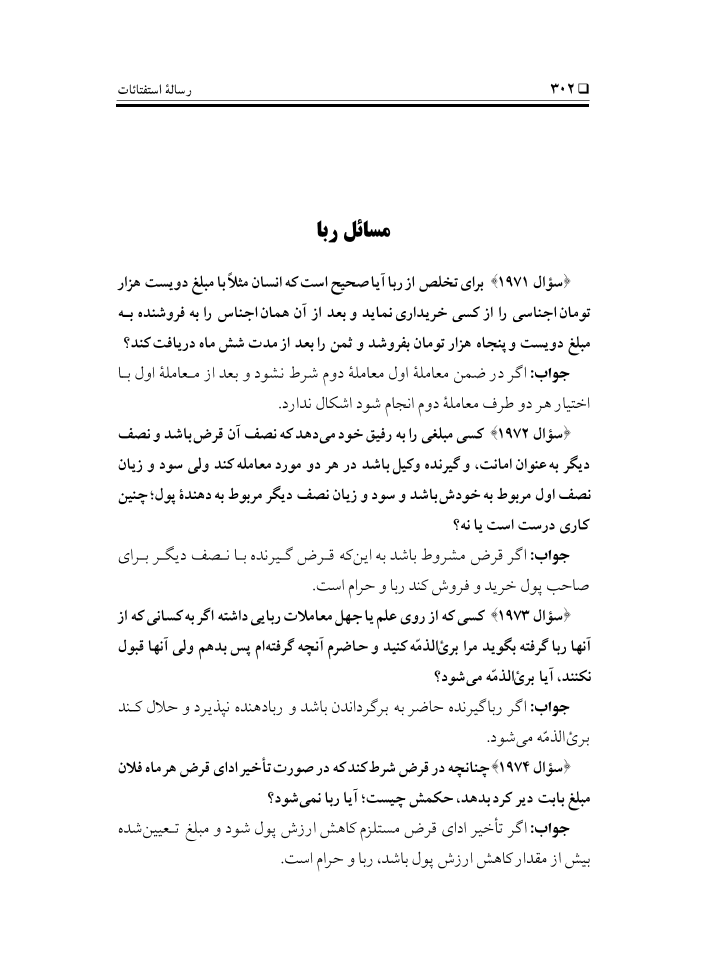 ❑ ۳۰۲
رسالهٔ استفتائات
مسائل ربا
﴿سؤال ۱۹۷۱﴾ برای تخلص از ربا آیا صحیح است که انسان مثلاً با مبلغ دویست هزار
تومان اجناسی را از کسی خریداری نماید و بعد از آن همان اجناس را به فروشنده بـه
مبلغ دویست و پنجاه هزار تومان بفروشد و ثمن را بعد از مدت شش ماه دریافت کند؟
جواب: اگر در ضمن معاملهٔ اول معاملهٔ دوم شرط نشود و بعد از مـعاملهٔ اول بـا
اختیار هر دو طرف معاملهٔ دوم انجام شود اشکال ندارد.
﴿سؤال ۱۹۷۲﴾ کسی مبلغی را به رفیق خود می‌دهد که نصف آن قرض باشد و نصف
دیگر به عنوان امانت، و گیرنده وکیل باشد در هر دو مورد معامله کند ولی سود و زیان
نصف اول مربوط به خودش باشد و سود و زیان نصف دیگر مربوط به دهندهٔ پول؛ چنین
کاری درست است یا نه؟
جواب: اگر قرض مشروط باشد به این‌که قـرض گـیرنده بـا نـصف دیگـر بـرای
صاحب پول خرید و فروش کند ربا و حرام است.
﴿سؤال ۱۹۷۳﴾ کسی که از روی علم یا جهل معاملات ربایی داشته اگر به کسانی که از
آنها ربا گرفته بگوید مرا برئ‌الذمّه کنید و حاضرم آنچه گرفته‌ام پس بدهم ولی آنها قبول
نکنند، آیا برئ‌الذمّه می‌شود؟
جواب: اگر رباگیرنده حاضر به برگرداندن باشد و ربادهنده نپذیرد و حلال کـند
برئ‌الذمّه می‌شود.
﴿سؤال ۱۹۷۴﴾ چنانچه در قرض شرط کند که در صورت تأخیر ادای قرض هر ماه فلان
مبلغ بابت دیر کرد بدهد، حکمش چیست؛ آیا ربا نمی‌شود؟
جواب: اگر تأخیر ادای قرض مستلزم کاهش ارزش پول شود و مبلغ تـعیین‌شده
بیش از مقدار کاهش ارزش پول باشد، ربا و حرام است.